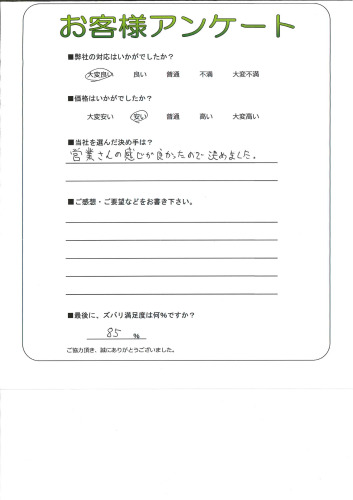 お客様アンケート
■弊社の対応はいかがでしたか？
大変良い 良い 普通 不満 大変不満
■価格はいかがでしたか？
大変安い 安い 普通 高い 大変高い
■当社を選んだ決め手は？
営業さんの感じが良かったので決めました。
■ご感想・ご要望などをお書き下さい。
■最後に、ズバリ満足度は何%ですか？
85 %
ご協力頂き、誠にありがとうございました。